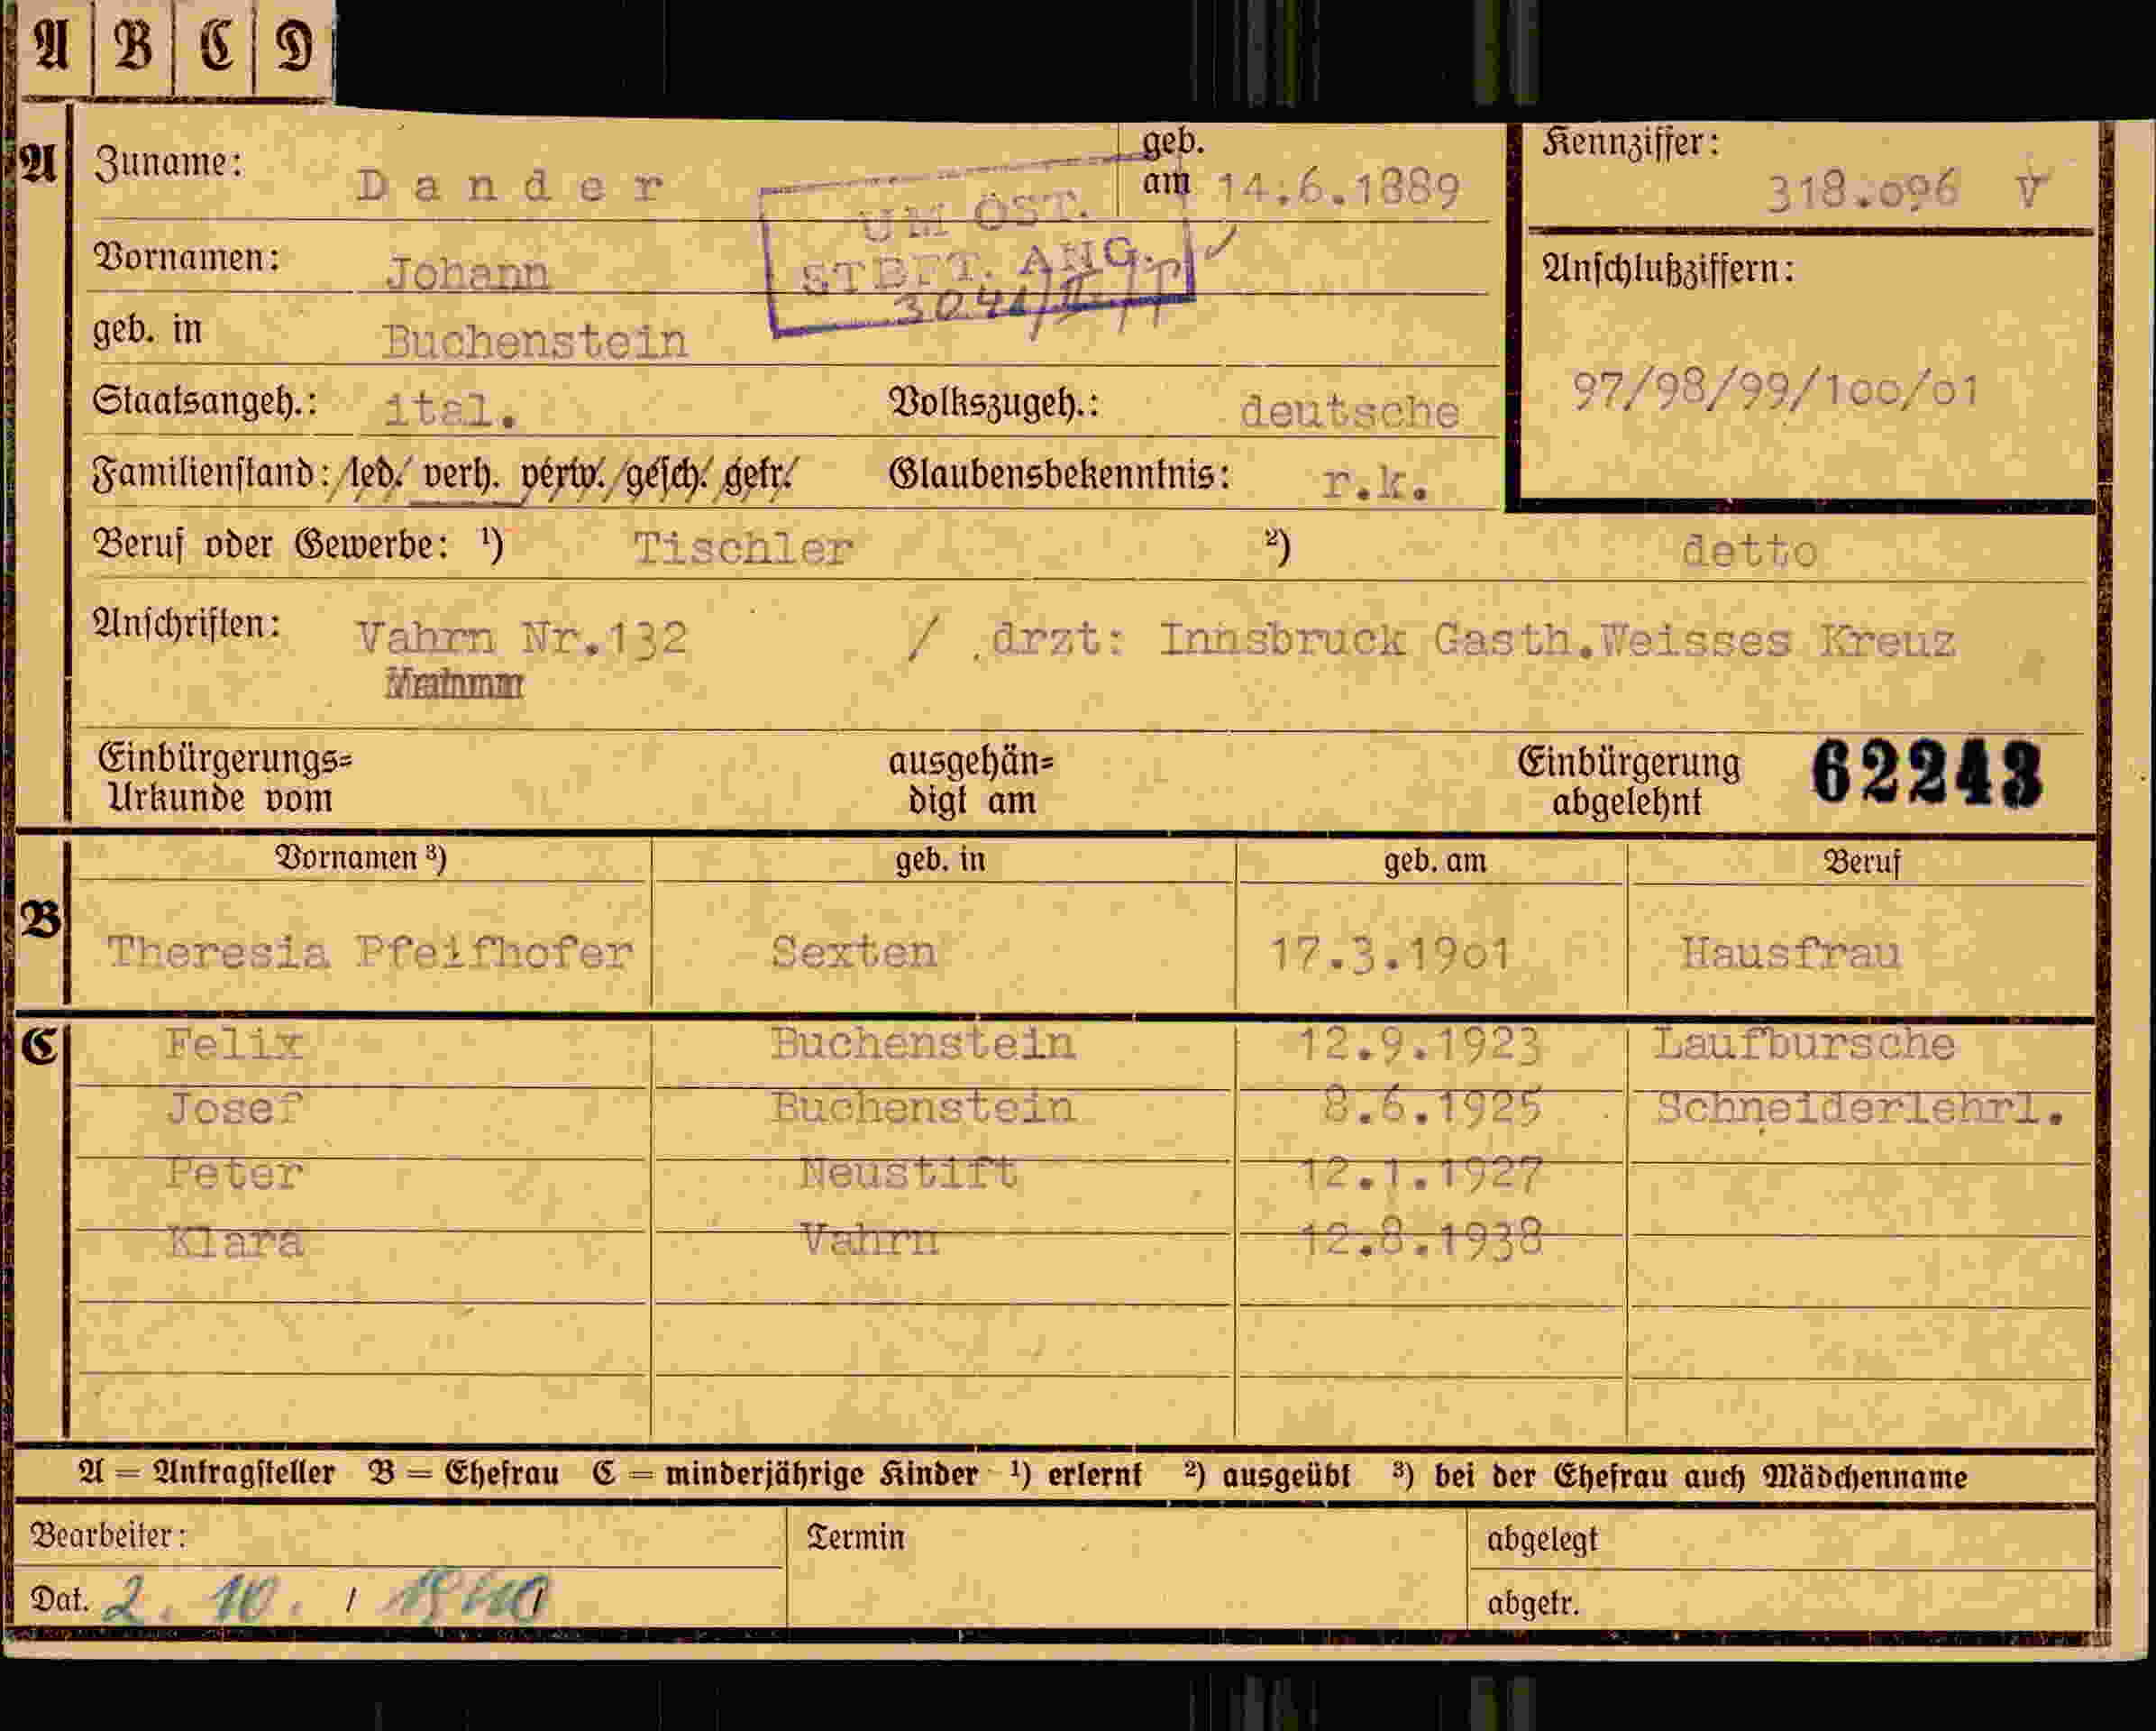 A B C D
A Zuname: Dander geb. am 14.6.1889
Kennziffer: 318.096 V
UM ÖST.
STBFT. ANG.
Vornamen: Johann
Anschlußziffern:
97/98/99/100/01
geb. in Buchenstein
Staatsangeh.: ital. Volkszugeh.: deutsche
Familienstand: led. verh. verw. gesch. getr. Glaubensbekenntnis: r.k.
Beruf oder Gewerbe: ¹) Tischler ²) detto
Anschriften: Vahrn Nr.132 / drzt: Innsbruck Gasth.Weisses Kreuz
Einbürgerungs= Urkunde vom
ausgehän= digt am
Einbürgerung abgelehnt 62243
B
Vornamen ³) geb. in geb. am Beruf
Theresia Pfeifhofer Sexten 17.3.1901 Hausfrau
C Felix Buchenstein 12.9.1923 Laufbursche
Josef Buchenstein 8.6.1925 Schneiderlehrl.
Peter Neustift 12.1.1927
Klara Vahrn 12.8.1938
A = Antragsteller B = Ehefrau C = minderjährige Kinder ¹) erlernt ²) ausgeübt ³) bei der Ehefrau auch Mädchenname
Bearbeiter: Termin abgelegt
Dat. 2. 10. / 1940 abgetr.